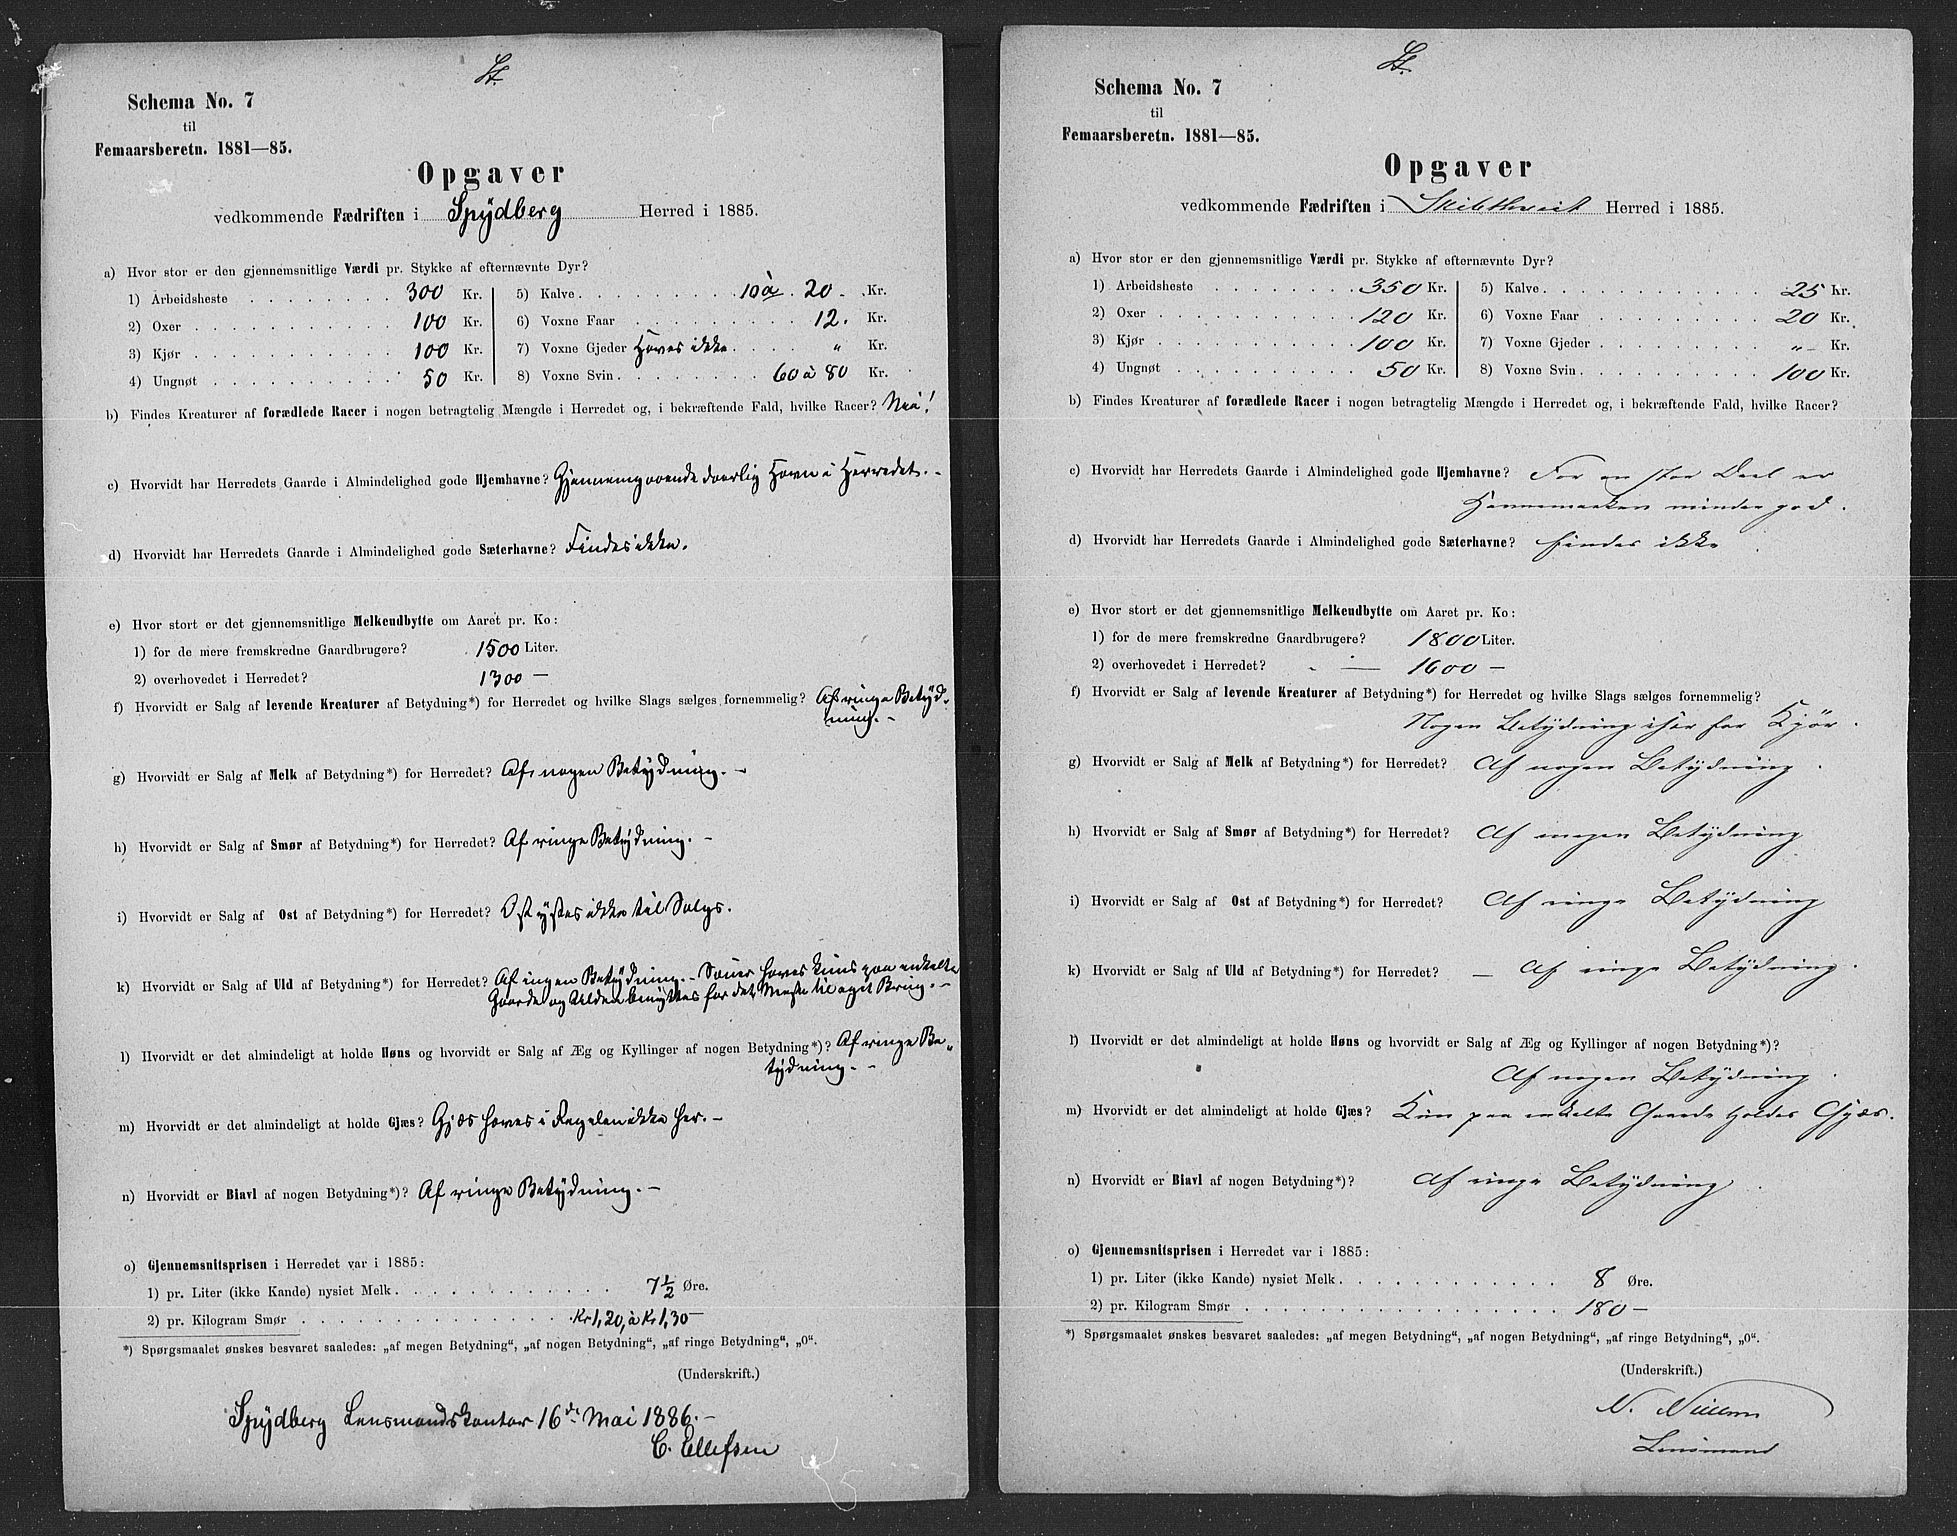 Schema No. 7
til
Femaarsberetn. 1881—85.
Opgaver
vedkommende Fædriften i Spydberg Herred i 1885.
a) Hvor stor er den gjennemsnitlige Værdi pr. Stykke af efternævnte Dyr?
1) Arbeidsheste 300 Kr.
2) Oxer 100 Kr.
3) Kjør 100 Kr.
4) Ungnøt 50 Kr.
5) Kalve 10 à 20 Kr.
6) Voxne Faar 12. Kr.
7) Voxne Gjeder Haves ikke „ Kr.
8) Voxne Svin 60 à 80 Kr.
b) Findes Kreaturer af forædlede Racer i nogen betragtelig Mængde i Herredet og, i bekræftende Fald, hvilke Racer? Nei!
c) Hvorvidt har Herredets Gaarde i Almindelighed gode Hjemhavne? Gjennemgaaende daarlig Havn i Herredet. -
d) Hvorvidt har Herredets Gaarde i Almindelighed gode Sæterhavne? Findes ikke.
e) Hvor stort er det gjennemsnitlige Melkeudbytte om Aaret pr. Ko:
1) for de mere fremskredne Gaardbrugere? 1500 Liter.
2) overhovedet i Herredet? 1300 —
f) Hvorvidt er Salg af levende Kreaturer af Betydning*) for Herredet og hvilke Slags sælges fornemmelig? Af ringe Betyd-
ning. -
g) Hvorvidt er Salg af Melk af Betydning*) for Herredet? Af nogen Betydning. -
h) Hvorvidt er Salg af Smør af Betydning*) for Herredet? Af ringe Betydning. -
i) Hvorvidt er Salg af Ost af Betydning*) for Herredet? Ost ystes ikke til Salgs.
k) Hvorvidt er Salg af Uld af Betydning*) for Herredet? Af ingen Betydning. - Sauer haves kuns paa enkelte
Gaarde og Ulden benyttes for det Meste til eget Brug. -
l) Hvorvidt er det almindeligt at holde Høns og hvorvidt er Salg af Æg og Kyllinger af nogen Betydning*)? Af ringe Be-
tydning. -
m) Hvorvidt er det almindeligt at holde Gjæs? Gjæs haves i Regelen ikke her. -
n) Hvorvidt er Biavl af nogen Betydning*)? Af ringe Betydning. -
o) Gjennemsnitsprisen i Herredet var i 1885:
1) pr. Liter (ikke Kande) nysiet Melk 7½ Øre.
2) pr. Kilogram Smør Kr 1,20, à Kr 1,30 —
*) Spørgsmaalet ønskes besvaret saaledes: „af megen Betydning“, „af nogen Betydning“, „af ringe Betydning“, „0“.
(Underskrift.)
Spydberg Lensmandskontor 16de Mai 1886. -
C. Ellefsen
Schema No. 7
til
Femaarsberetn. 1881—85.
Opgaver
vedkommende Fædriften i Skibthveit Herred i 1885.
a) Hvor stor er den gjennemsnitlige Værdi pr. Stykke af efternævnte Dyr?
1) Arbeidsheste 350 Kr.
2) Oxer 120 Kr.
3) Kjør 100 Kr.
4) Ungnøt 50 Kr.
5) Kalve 25 Kr.
6) Voxne Faar 20 Kr.
7) Voxne Gjeder „ Kr.
8) Voxne Svin 100 Kr.
b) Findes Kreaturer af forædlede Racer i nogen betragtelig Mængde i Herredet og, i bekræftende Fald, hvilke Racer?
c) Hvorvidt har Herredets Gaarde i Almindelighed gode Hjemhavne? For en stor Deel er
Havnemarken mindre god.
d) Hvorvidt har Herredets Gaarde i Almindelighed gode Sæterhavne? findes ikke
e) Hvor stort er det gjennemsnitlige Melkeudbytte om Aaret pr. Ko:
1) for de mere fremskredne Gaardbrugere? 1800 Liter.
2) overhovedet i Herredet? 1600 —
f) Hvorvidt er Salg af levende Kreaturer af Betydning*) for Herredet og hvilke Slags sælges fornemmelig?
Nogen Betydning især for Kjør.
g) Hvorvidt er Salg af Melk af Betydning*) for Herredet? Af nogen Betydning.
h) Hvorvidt er Salg af Smør af Betydning*) for Herredet? Af megen Betydning
i) Hvorvidt er Salg af Ost af Betydning*) for Herredet? Af ringe Betydning
k) Hvorvidt er Salg af Uld af Betydning*) for Herredet? — Af ringe Betydning.
l) Hvorvidt er det almindeligt at holde Høns og hvorvidt er Salg af Æg og Kyllinger af nogen Betydning*)?
Af nogen Betydning.
m) Hvorvidt er det almindeligt at holde Gjæs? Kun paa enkelte Gaarde holdes Gjæs.
n) Hvorvidt er Biavl af nogen Betydning*)? Af ringe Betydning.
o) Gjennemsnitsprisen i Herredet var i 1885:
1) pr. Liter (ikke Kande) nysiet Melk 8 Øre.
2) pr. Kilogram Smør 180 —
*) Spørgsmaalet ønskes besvaret saaledes: „af megen Betydning“, „af nogen Betydning“, „af ringe Betydning“, „0“.
(Underskrift.)
N. Nielsen
Lensmand